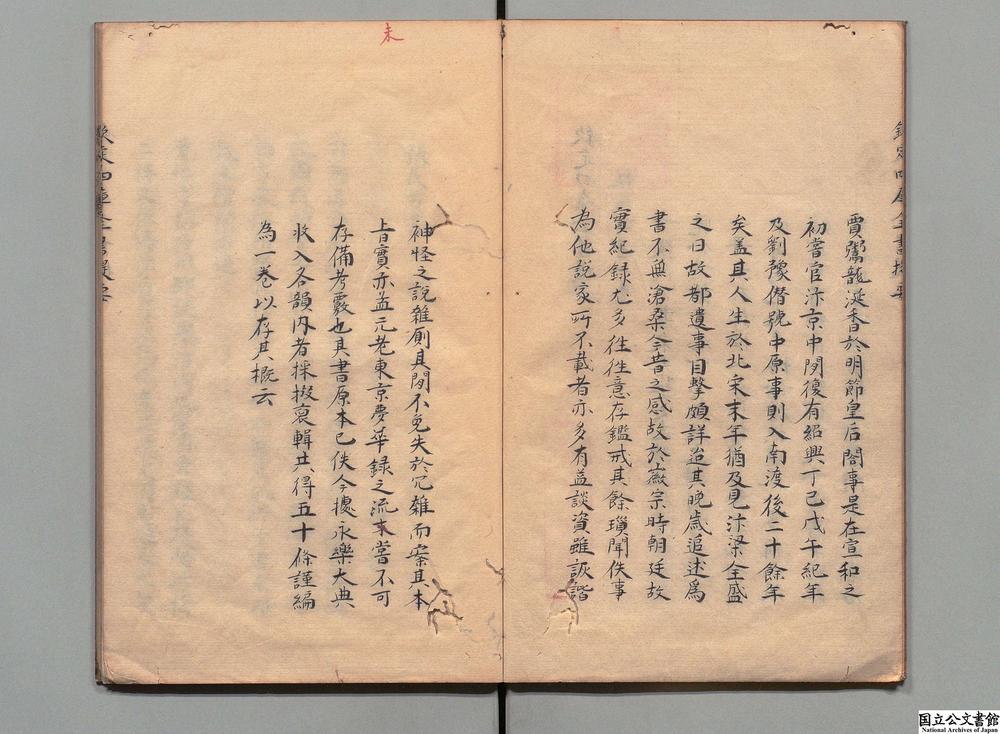 賈鶚龍涎香於明節皇后閣事是在宣和之
初嘗官汴京中間復有紹興丁巳戊午紀年
及劉豫僭號中原事則入南渡後二十餘年
矣盖其人生於北宋末年猶及見汴梁全盛
之日故都遺事目擊頗詳迨其晩歲追述為
書不無滄桑今昔之感故於徽宗時朝廷故
實紀録尤多往往意存鑑戒其餘瓊聞佚事
為他說家所不載者亦多有益談資雖詼諧
神怪之說雜廁其間不免失於冗雜而案其本
㫖實亦孟元老東京夢華録之流未嘗不可
存備考覈也其書原本已佚今據永樂大典
收入各韻内者採掇裒輯共得五十條謹編
為一卷以存其概云
未
欽定四庫全書提要
國立公文書館
National Archives of Japan